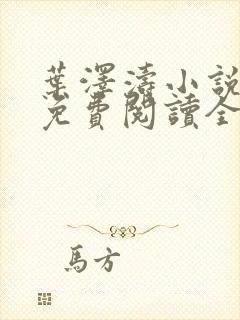 葉澤濤小說
免費閱讀全
馬方